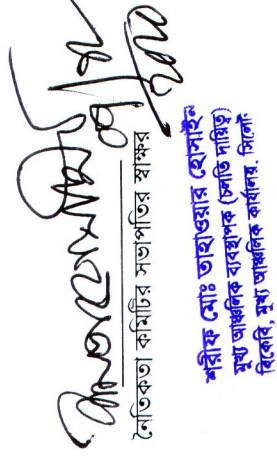 নৈতিকতা কমিটির সভাপতির স্বাক্ষর
শরীফ মোঃ তাহাওয়ার হোসাইন
মুখ্য আঞ্চলিক ব্যবস্থাপক (চলতি দায়িত্ব)
বিকেবি, মুখ্য আঞ্চলিক কার্যালয়, সিলেট